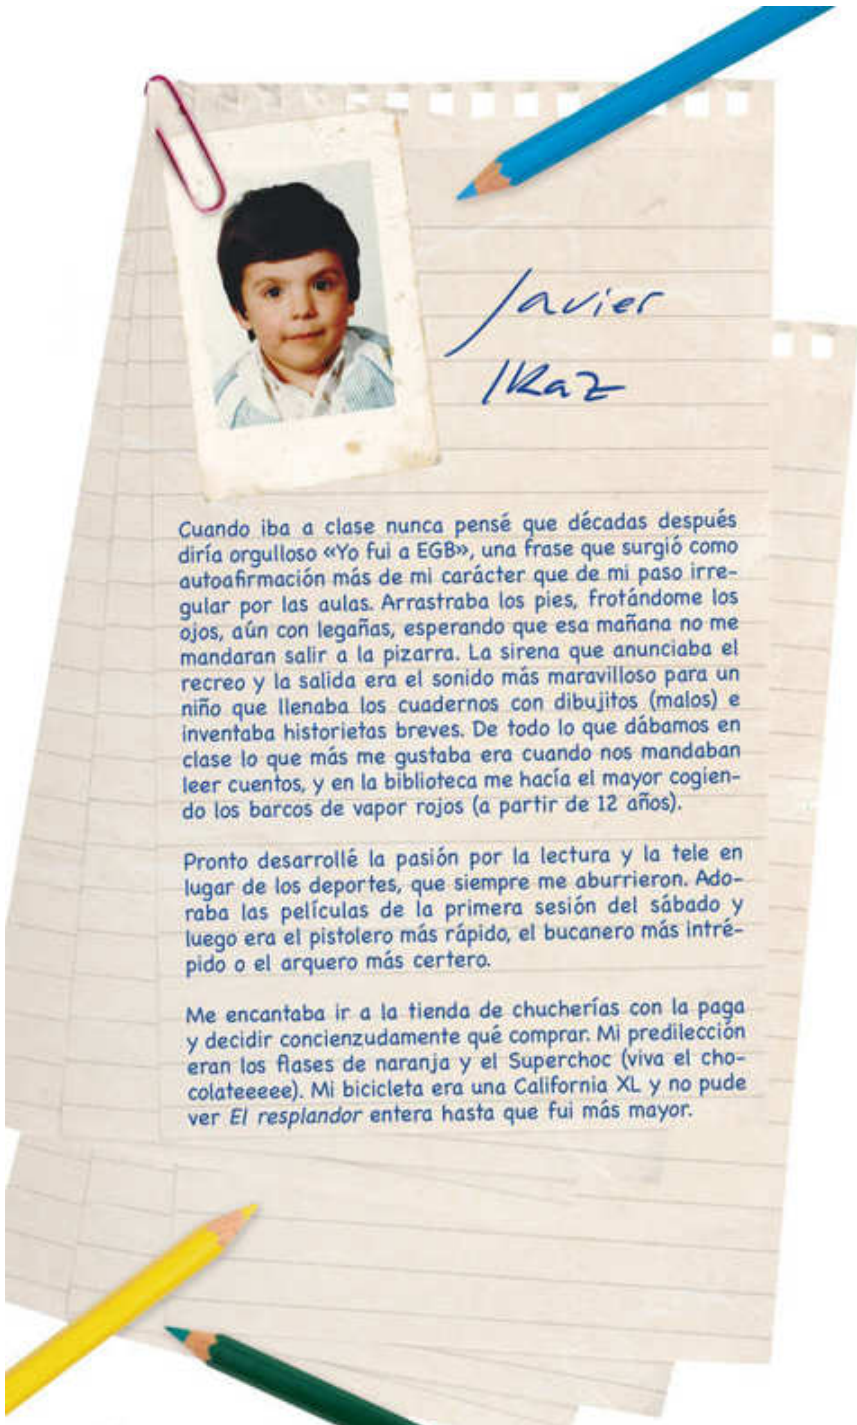 Javier
Ikaz
Cuando iba a clase nunca pensé que décadas después
diría orgulloso «Yo fui a EGB», una frase que surgió como
autoafirmación más de mi carácter que de mi paso irre-
gular por las aulas. Arrastraba los pies, frotándome los
ojos, aún con legañas, esperando que esa mañana no me
mandaran salir a la pizarra. La sirena que anunciaba el
recreo y la salida era el sonido más maravilloso para un
niño que llenaba los cuadernos con dibujitos (malos) e
inventaba historietas breves. De todo lo que dábamos en
clase lo que más me gustaba era cuando nos mandaban
leer cuentos, y en la biblioteca me hacía el mayor cogien-
do los barcos de vapor rojos (a partir de 12 años).
Pronto desarrollé la pasión por la lectura y la tele en
lugar de los deportes, que siempre me aburrieron. Ado-
raba las películas de la primera sesión del sábado y
luego era el pistolero más rápido, el bucanero más intré-
pido o el arquero más certero.
Me encantaba ir a la tienda de chucherías con la paga
y decidir concienzudamente qué comprar. Mi predilección
eran los flases de naranja y el Superchoc (viva el cho-
colateeeee). Mi bicicleta era una California XL y no pude
ver El resplandor entera hasta que fui más mayor.